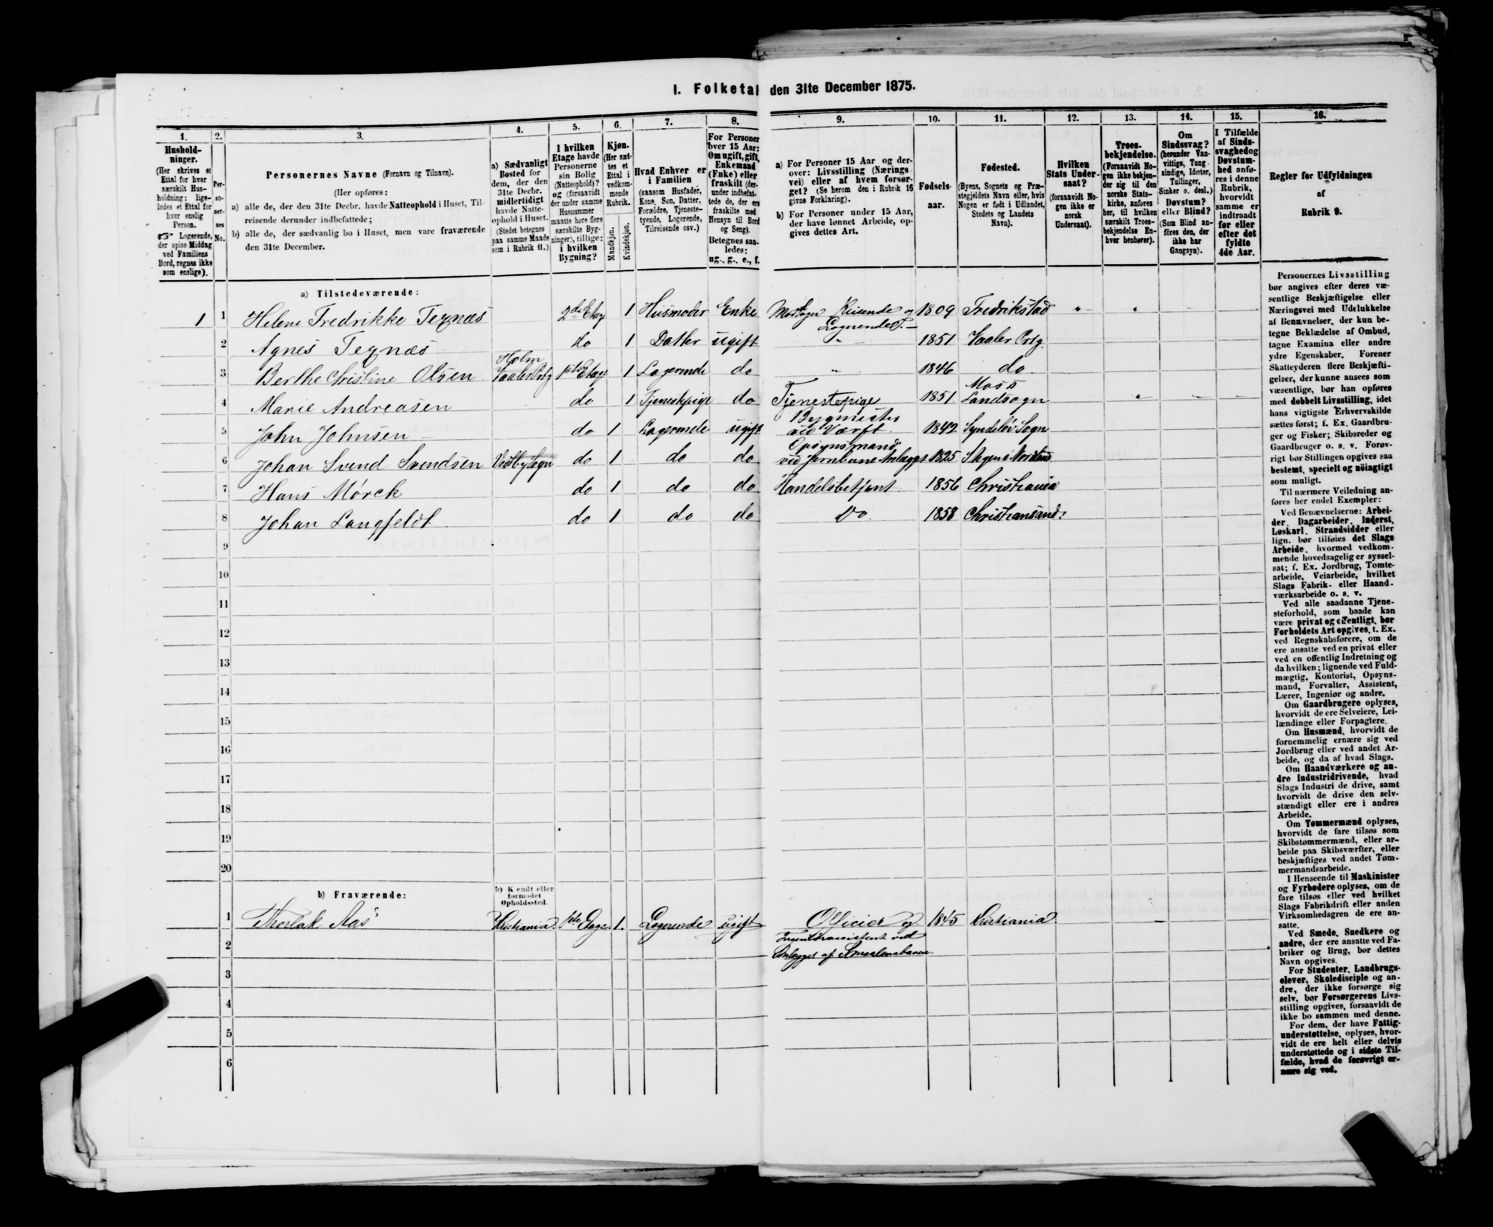 I. Folketal den 31te December 1875.
1. 2. 3. 4. 5. 6. 7. 8. 9. 10. 11. 12. 13. 14. 15. 16.
Hushold-
ninger.
(Her skrives et
Ettal for hver
særskilt Hus-
holdning; lige-
ledes et Ettal for
hver enslig
Person.
☞ Logerende,
der spise Middag
ved Familiens
Bord, regnes ikke
som enslige).
Per-
so-
ner-
nes
No.
Personernes Navne (Fornavn og Tilnavn).
(Her opføres:
a) alle de, der den 31te Decbr. havde Natteophold i Huset, Til-
reisende derunder indbefattede;
b) alle de, der sædvanlig bo i Huset, men vare fraværende
den 31te December.
a) Sædvanligt
Bosted for
dem, der den
31te Decbr.
midlertidigt
havde Natte-
ophold i Huset.
(Stedet betegnes
paa samme Maade
som i Rubrik 11.)
I hvilken
Etage havde
Personerne
sin Bolig
(Natteophold)?
og (forsaavidt
der under samme
Husnummer
maatte høre flere
særskilte Byg-
ninger), tillige:
i hvilken
Bygning?
Kjøn.
(Her sæt-
tes et
Ettal i
vedkom-
mende
Rubrik.
Mandkjøn.
Kvindekjøn.
Hvad Enhver er
i Familien
(saasom Husfader,
Kone, Søn, Datter,
Forældre, Tjeneste-
tyende, Logerende,
Tilreisende osv.)
For Personer
over 15 Aar:
Om ugift, gift,
Enkemand
(Enke) eller
fraskilt (der-
under indbefat-
tede de, der ere
fraskilte med
Hensyn til Bord
og Seng).
Betegnes saa-
ledes:
ug., g., e., f.
a) For Personer 15 Aar og der-
over: Livsstilling (Nærings-
vei) eller af hvem forsør-
get? (Se herom den i Rubrik 16
givne Forklaring).
b) For Personer under 15 Aar,
der have lønnet Arbeide, op-
gives dettes Art.
Fødsels-
aar.
Fødested.
(Byens, Sognets og Præ-
stegjeldets Navn eller, hvis
Nogen er født i Udlandet,
Stedets og Landets
Navn).
Hvilken
Stats Under-
saat?
(forsaavidt No-
gen ikke er
norsk
Undersaat).
Troes-
bekjendelse.
(Forsaavidt No-
gen ikke bekjen-
der sig til den
norske Stats-
kirke, anføres
her, til hvilken
særskilt Troes-
bekjendelse En-
hver henhører).
Om
Sindssvag?
(herunder Van-
vittige, Tung-
sindige, Idioter,
Tullinger,
Sinker o. desl.)
Døvstum?
eller Blind?
(Som Blind an-
føres den, der
ikke har
Gangsyn).
I Tilfælde
af Sinds-
svaghed og
Døvstum-
hed anfø-
res i denne
Rubrik,
hvorvidt
samme er
indtraadt
før eller
efter det
fyldte
4de Aar.
Regler for Udfyldningen
af
Rubrik 9.
a) Tilstedeværende:
1 1 Helene Fredrikke Tegnæs 2den Etag 1 Husmoder Enke Modtager Reisende og Logerende 1809 Fredrikstad " "
2 Agnes Tegnæs do 1 Datter ugift " 1851 Vaaler Prtg.
3 Berthe Christine Olsen Holm Vaaler Prtg 1ste Etage 1 Logerende do " 1846 do
4 Marie Andreasen do 1 Tjenestepige do Tjenestepige 1851 Moss Landsogn "
5 John Johnsen do 1 Logerende ugift Bygmester ved Værft 1842 Sogn
6 Johan Svend Svendsen Vestby Sogn do 1 do do Opsynsmand ved Jernbane Anlægget 1825
7 Hans Mørck do 1 do do Handelsbetjent 1856 Christiania
8 Johan Langfeldt do 1 do do Do 1858 Christiansand
9
10
11
12
13
14
15
16
17
18
19
20
b) Fraværende:
b) Kjendt eller
formodet
Opholdssted.
1 Thorlak Aas Kristiania 1ste Etage 1. Logerende ugift Officier og 1845 Kristiania
2 Ingeniørassistent ved
Anlægget af Smaalensbanen.
3
4
5
6
Personernes Livsstilling
bør angives efter deres væ-
sentlige Beskjæftigelse eller
Næringsvei med Udelukkelse
af Benævnelser, der kun be-
tegne Beklædelse af Ombud,
tagne Examina eller andre
ydre Egenskaber. Forener
Skatteyderen flere Beskjæfti-
gelser, der kunne ansees som
væsentlige, bør han opføres
med dobbelt Livsstilling, idet
hans vigtigste Erhvervskilde
sættes først; f. Ex. Gaardbru-
ger og Fisker; Skibsreder og
Gaardbruger o. s. v. Forøv-
rigt bør Stillingen opgives saa
bestemt, specielt og nöiagtigt
som muligt.
Til nærmere Veiledning an-
føres her endel Exempler:
Ved Benævnelserne: Arbei-
der, Dagarbeider, Inderst,
Løskarl, Strandsidder eller
lign. bør tilføies det Slags
Arbeide, hvormed vedkom-
mende hovedsagelig er syssel-
sat; f. Ex. Jordbrug, Tomte-
arbeide, Veiarbeide, hvilket
Slags Fabrik- eller Haand-
værksarbeide o. s. v.
Ved alle saadanne Tjene-
steforhold, som baade kan
være privat og offentligt, bør
Forholdets Art opgives, t. Ex.
ved Regnskabsførere, om de
ere ansatte ved en privat eller
ved en offentlig Indretning og
da hvilken; lignende ved Fuld-
mægtig, Kontorist, Opsyns-
mand, Forvalter, Assistent,
Lærer, Ingeniør og andre.
Om Gaardbrugere oplyses,
hvorvidt de ere Selveiere, Lei-
lændinge eller Forpagtere.
Om Husmænd, hvorvidt de
fornemmelig ernære sig ved
Jordbrug eller ved andet Ar-
beide, og da af hvad Slags.
Om Haandværkere og an-
dre Industridrivende, hvad
Slags Industri de drive, samt
hvorvidt de drive den selv-
stændigt eller ere i andres
Arbeide.
Om Tømmermænd oplyses,
hvorvidt de fare tilsøs som
Skibstømmermænd, eller ar-
beide paa Skibsværfter, eller
beskjæftiges ved andet Tøm-
mermandsarbeide.
I Henseende til Maskinister
og Fyrbødere oplyses, om de
fare tilsøs eller ved hvilket
Slags Fabrikdrift eller anden
Virksomhedsgren de ere an-
satte.
Ved Smede, Snedkere og
andre, der ere ansatte ved Fa-
briker og Brug, bør dettes
Navn opgives.
For Studenter, Landbrugs-
elever, Skoledisciple og an-
dre, der ikke forsørge sig
selv, bør Forsørgerens Livs-
stilling opgives, forsaavidt de
ikke bo sammen med denne.
For dem, der have Fattig-
understøttelse, oplyses, hvor-
vidt de ere helt eller delvis
understøttede og i sidste Til-
fælde, hvad de forøvrigt er-
nære sig ved.